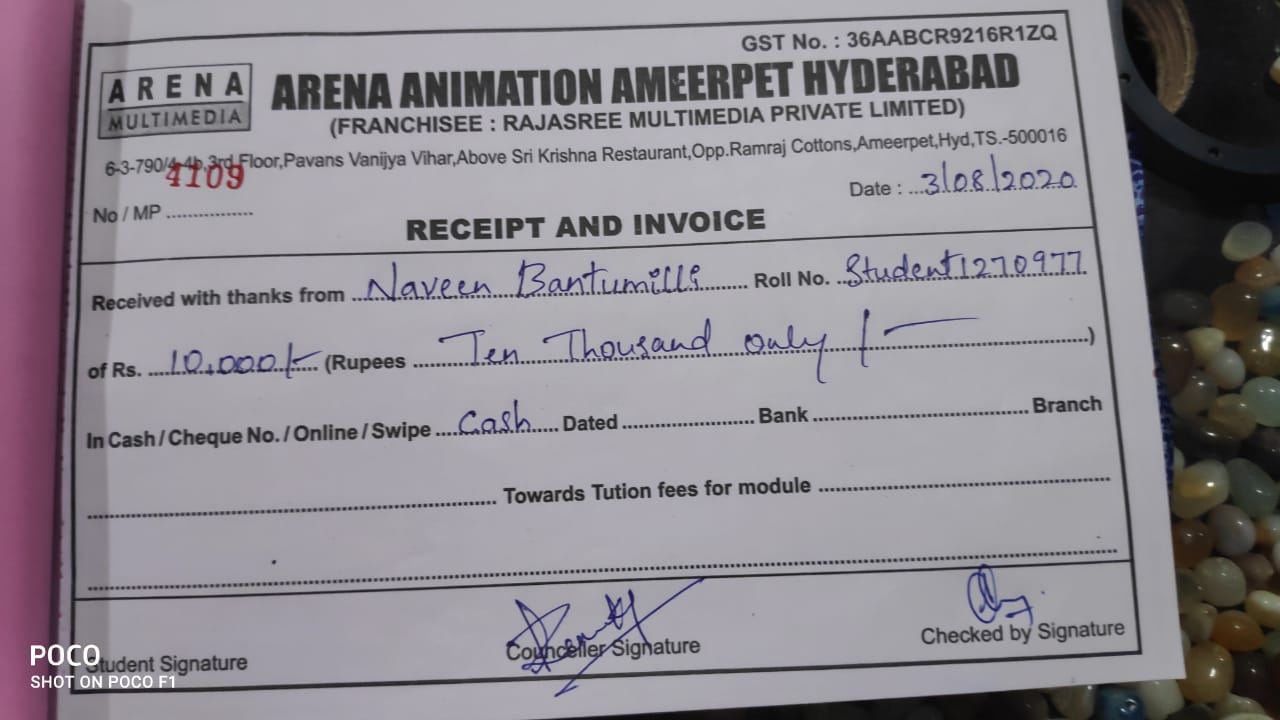 GST No. : 36AABCR9216R1ZQ
ARENA
MULTIMEDIA
ARENA ANIMATION AMEERPET HYDERABAD
(FRANCHISEE : RAJASREE MULTIMEDIA PRIVATE LIMITED)
6-3-790/4-4b,3rd Floor,Pavans Vanijya Vihar,Above Sri Krishna Restaurant,Opp.Ramraj Cottons,Ameerpet,Hyd,TS.-500016
4109
No / MP ................ Date : ...3/08/2020
RECEIPT AND INVOICE
Received with thanks from ...Naveen Bantumilli........ Roll No. ..Student1270977
of Rs. ....10,000/-.... (Rupees ........Ten Thousand only /-........)
In Cash / Cheque No. / Online / Swipe ....Cash.... Dated ........................ Bank ........................................ Branch
........................................ Towards Tution fees for module ........................................
Student Signature Counceller Signature Checked by Signature
POCO
SHOT ON POCO F1